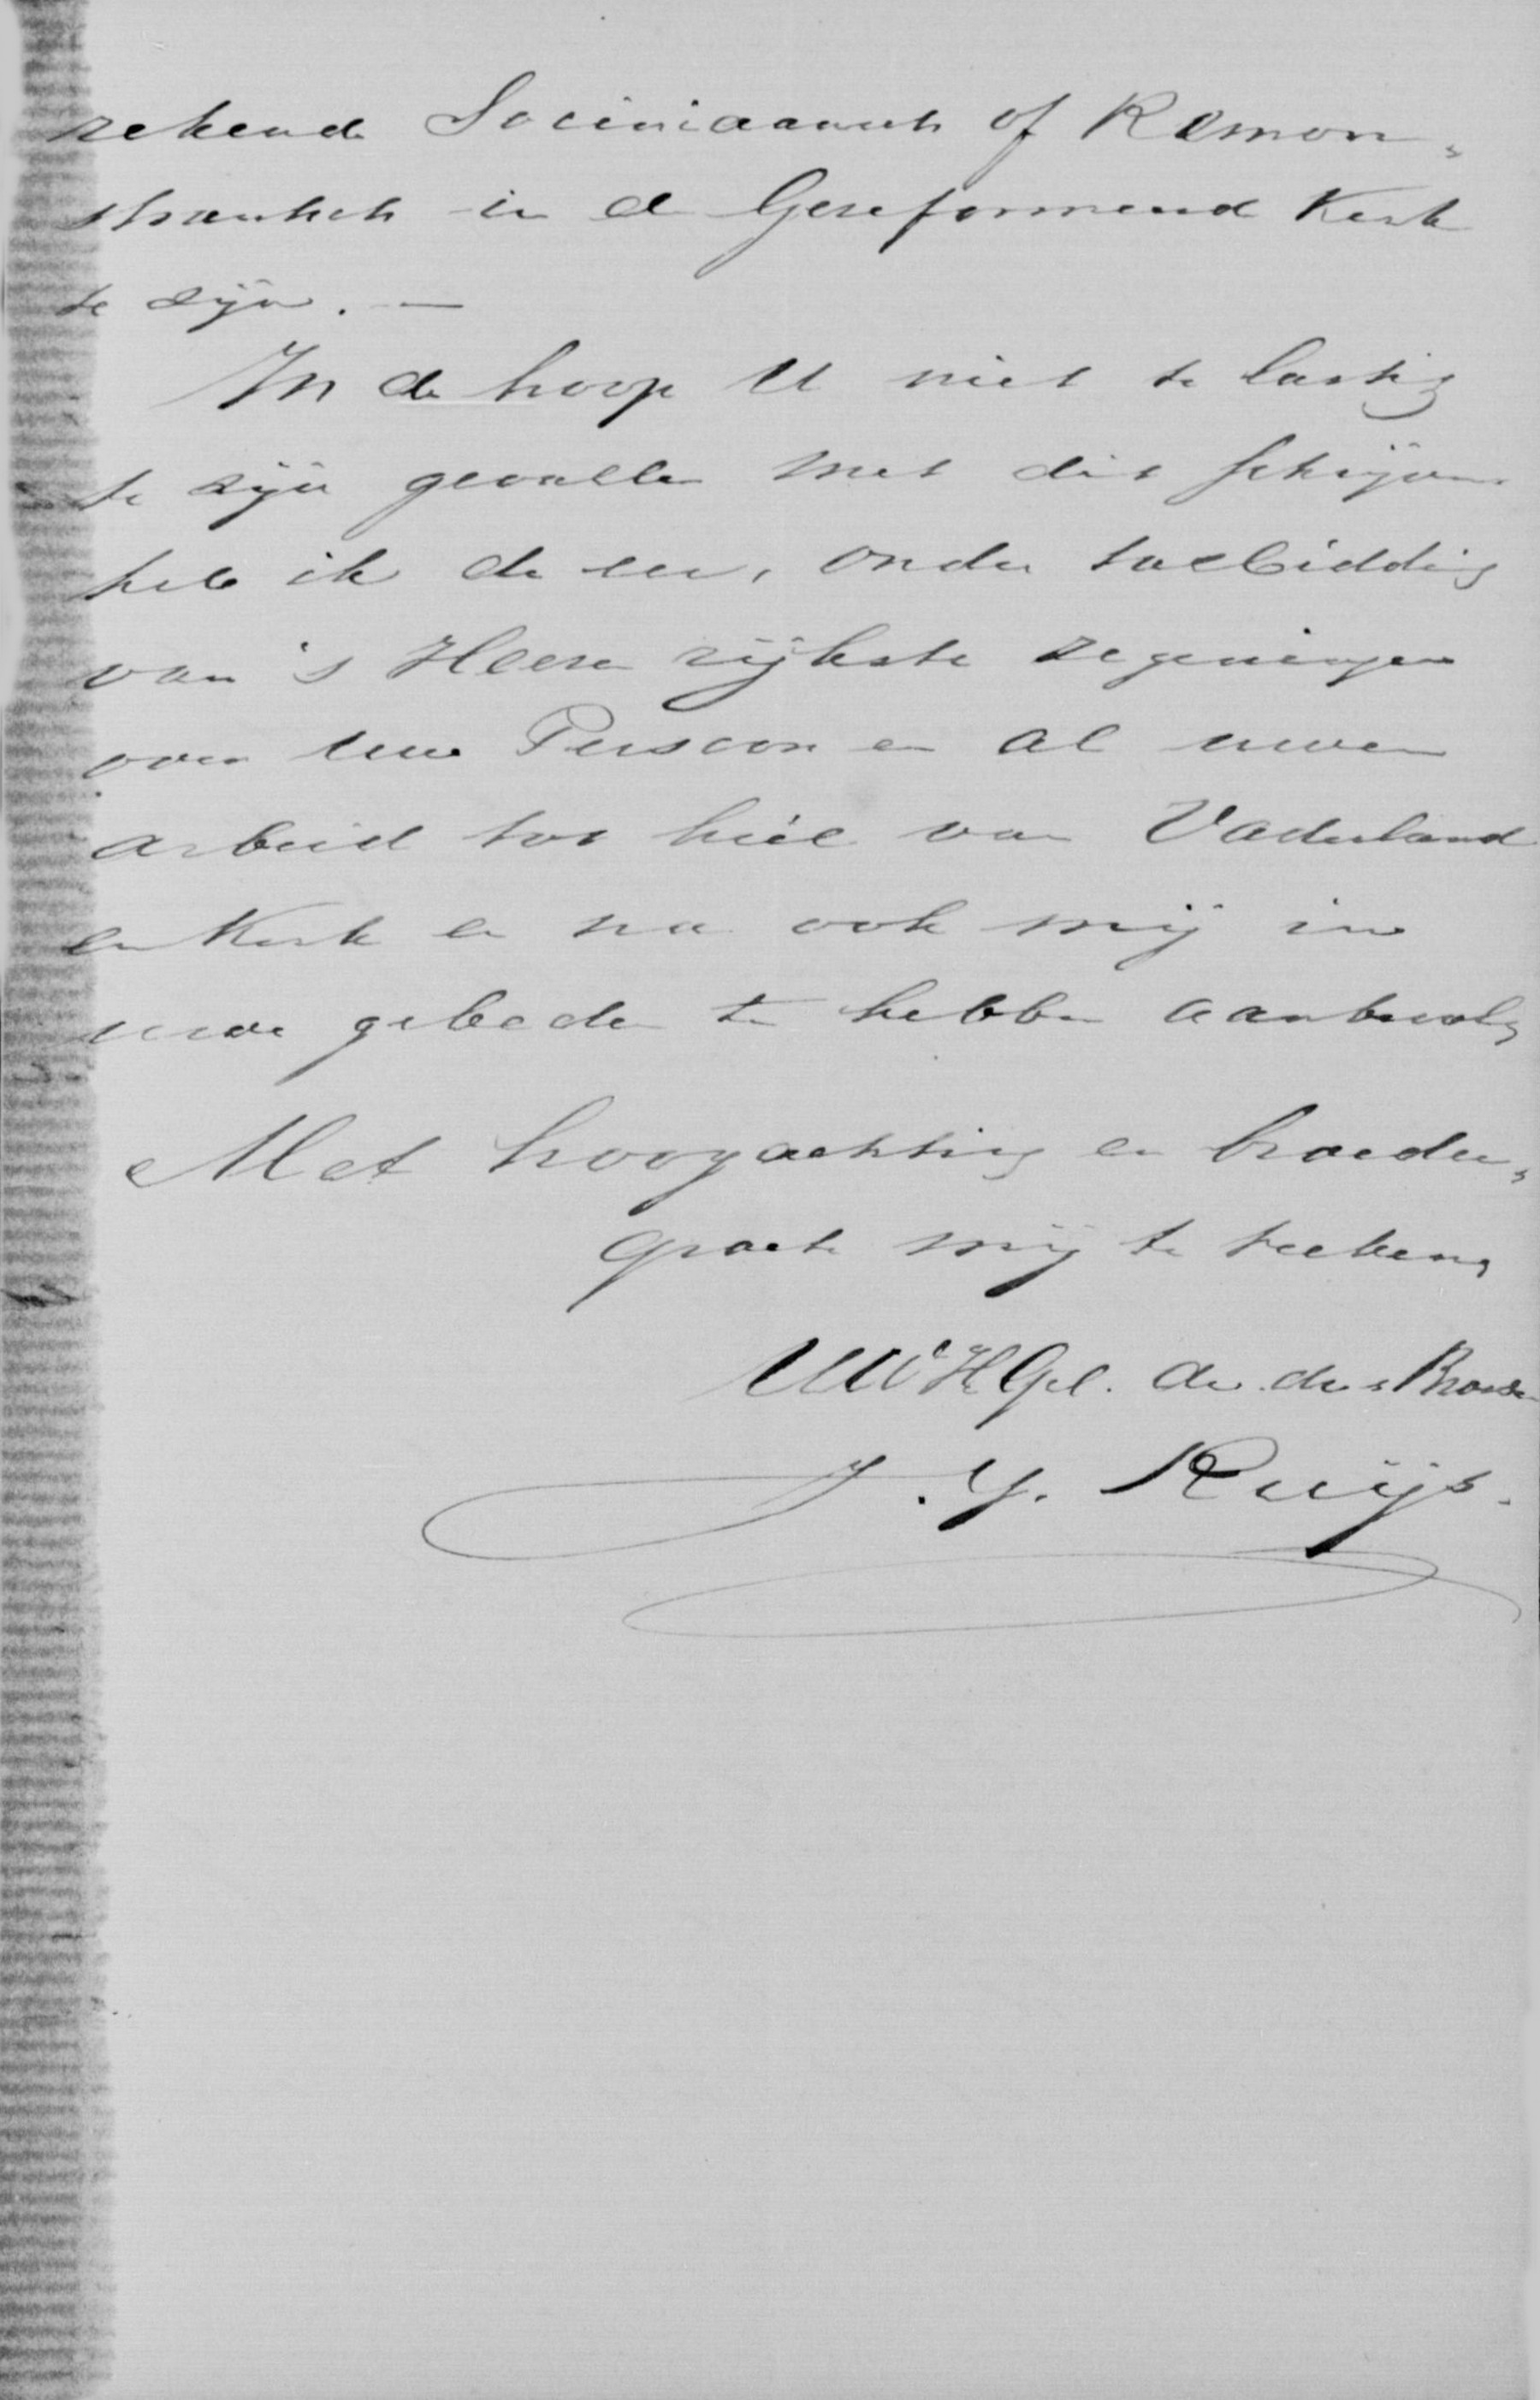 zekende Sociniaansch of Remon-
strantsch in de Gereformeerd Kerk
te zijn. —
In de hoop U niet te lastig
te zijn gevallen met dit schrijven
heb ik de eer, onder toebidding
van 's Heeren rijkste zegeningen
over Uw Persoon en al uwen
arbeid tot heil van Vaderland
en Kerk en na ook mij in
uwe gebeden te hebben aanbevolen
Met hoogachting en broeder-
groete mij te teekenen
UWHGel. dw. dr. & Broeder
J. Y. Ruijs.